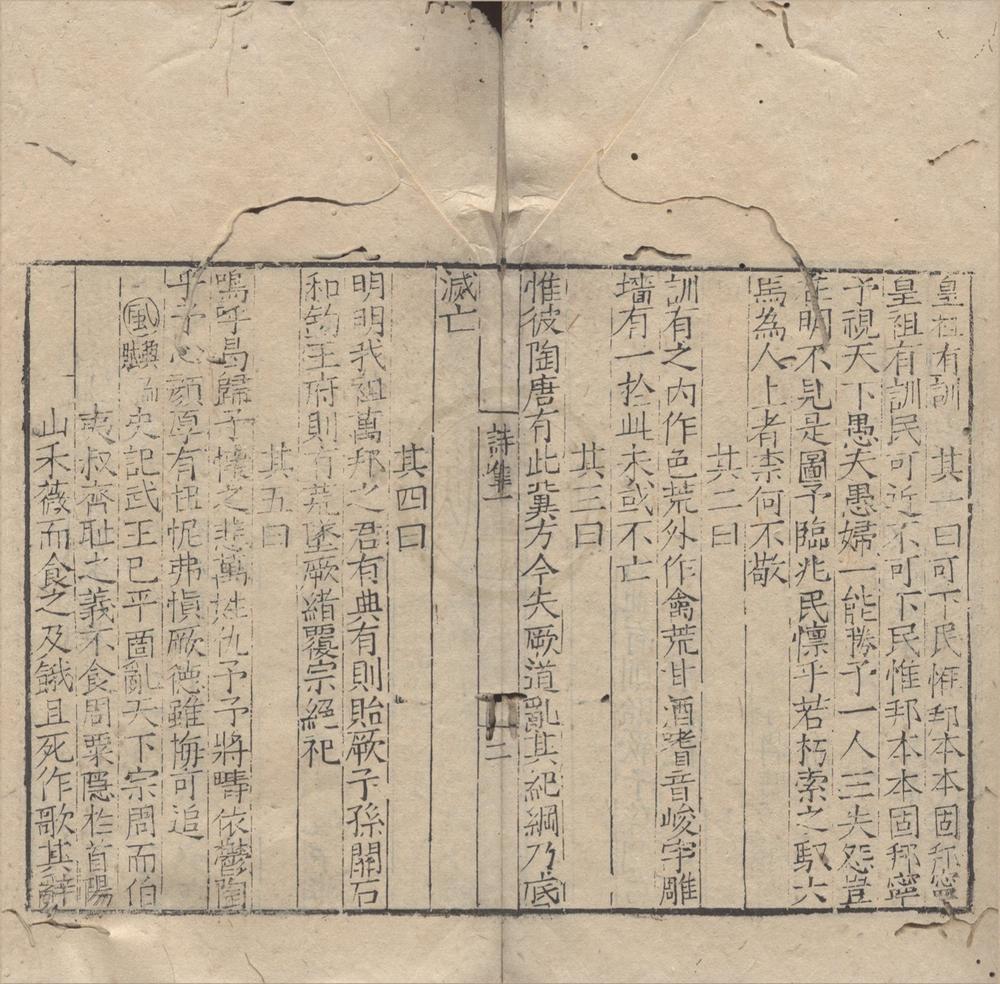 皇祖有訓　其一曰可下民惟邦本本固邦寧
皇祖有訓民可近不可下民惟邦本本固邦寧
予視天下愚夫愚婦一能勝予一人三失怨豈
在明不見是圖予臨兆民懍乎若朽索之馭六
馬為人上者柰何不敬
其二曰
訓有之內作色荒外作禽荒甘酒嗜音峻宇雕
墻有一於此未或不亡
其三曰
惟彼陶唐有此冀方今失厥道亂其紀綱乃底
詩集一
二
滅亡
其四曰
明明我祖萬邦之君有典有則貽厥子孫關石
和鈞王府則有荒墜厥緒覆宗絕祀
其五曰
嗚呼曷歸予懷之悲萬姓仇予予將疇依鬱陶
乎予心顏厚有忸怩弗慎厥德雖悔可追
風 央記武王已平啇亂天下宗周而伯
夷叔齊恥之義不食周粟隱於首陽
山禾薇而食之及餓且死作歌其辭